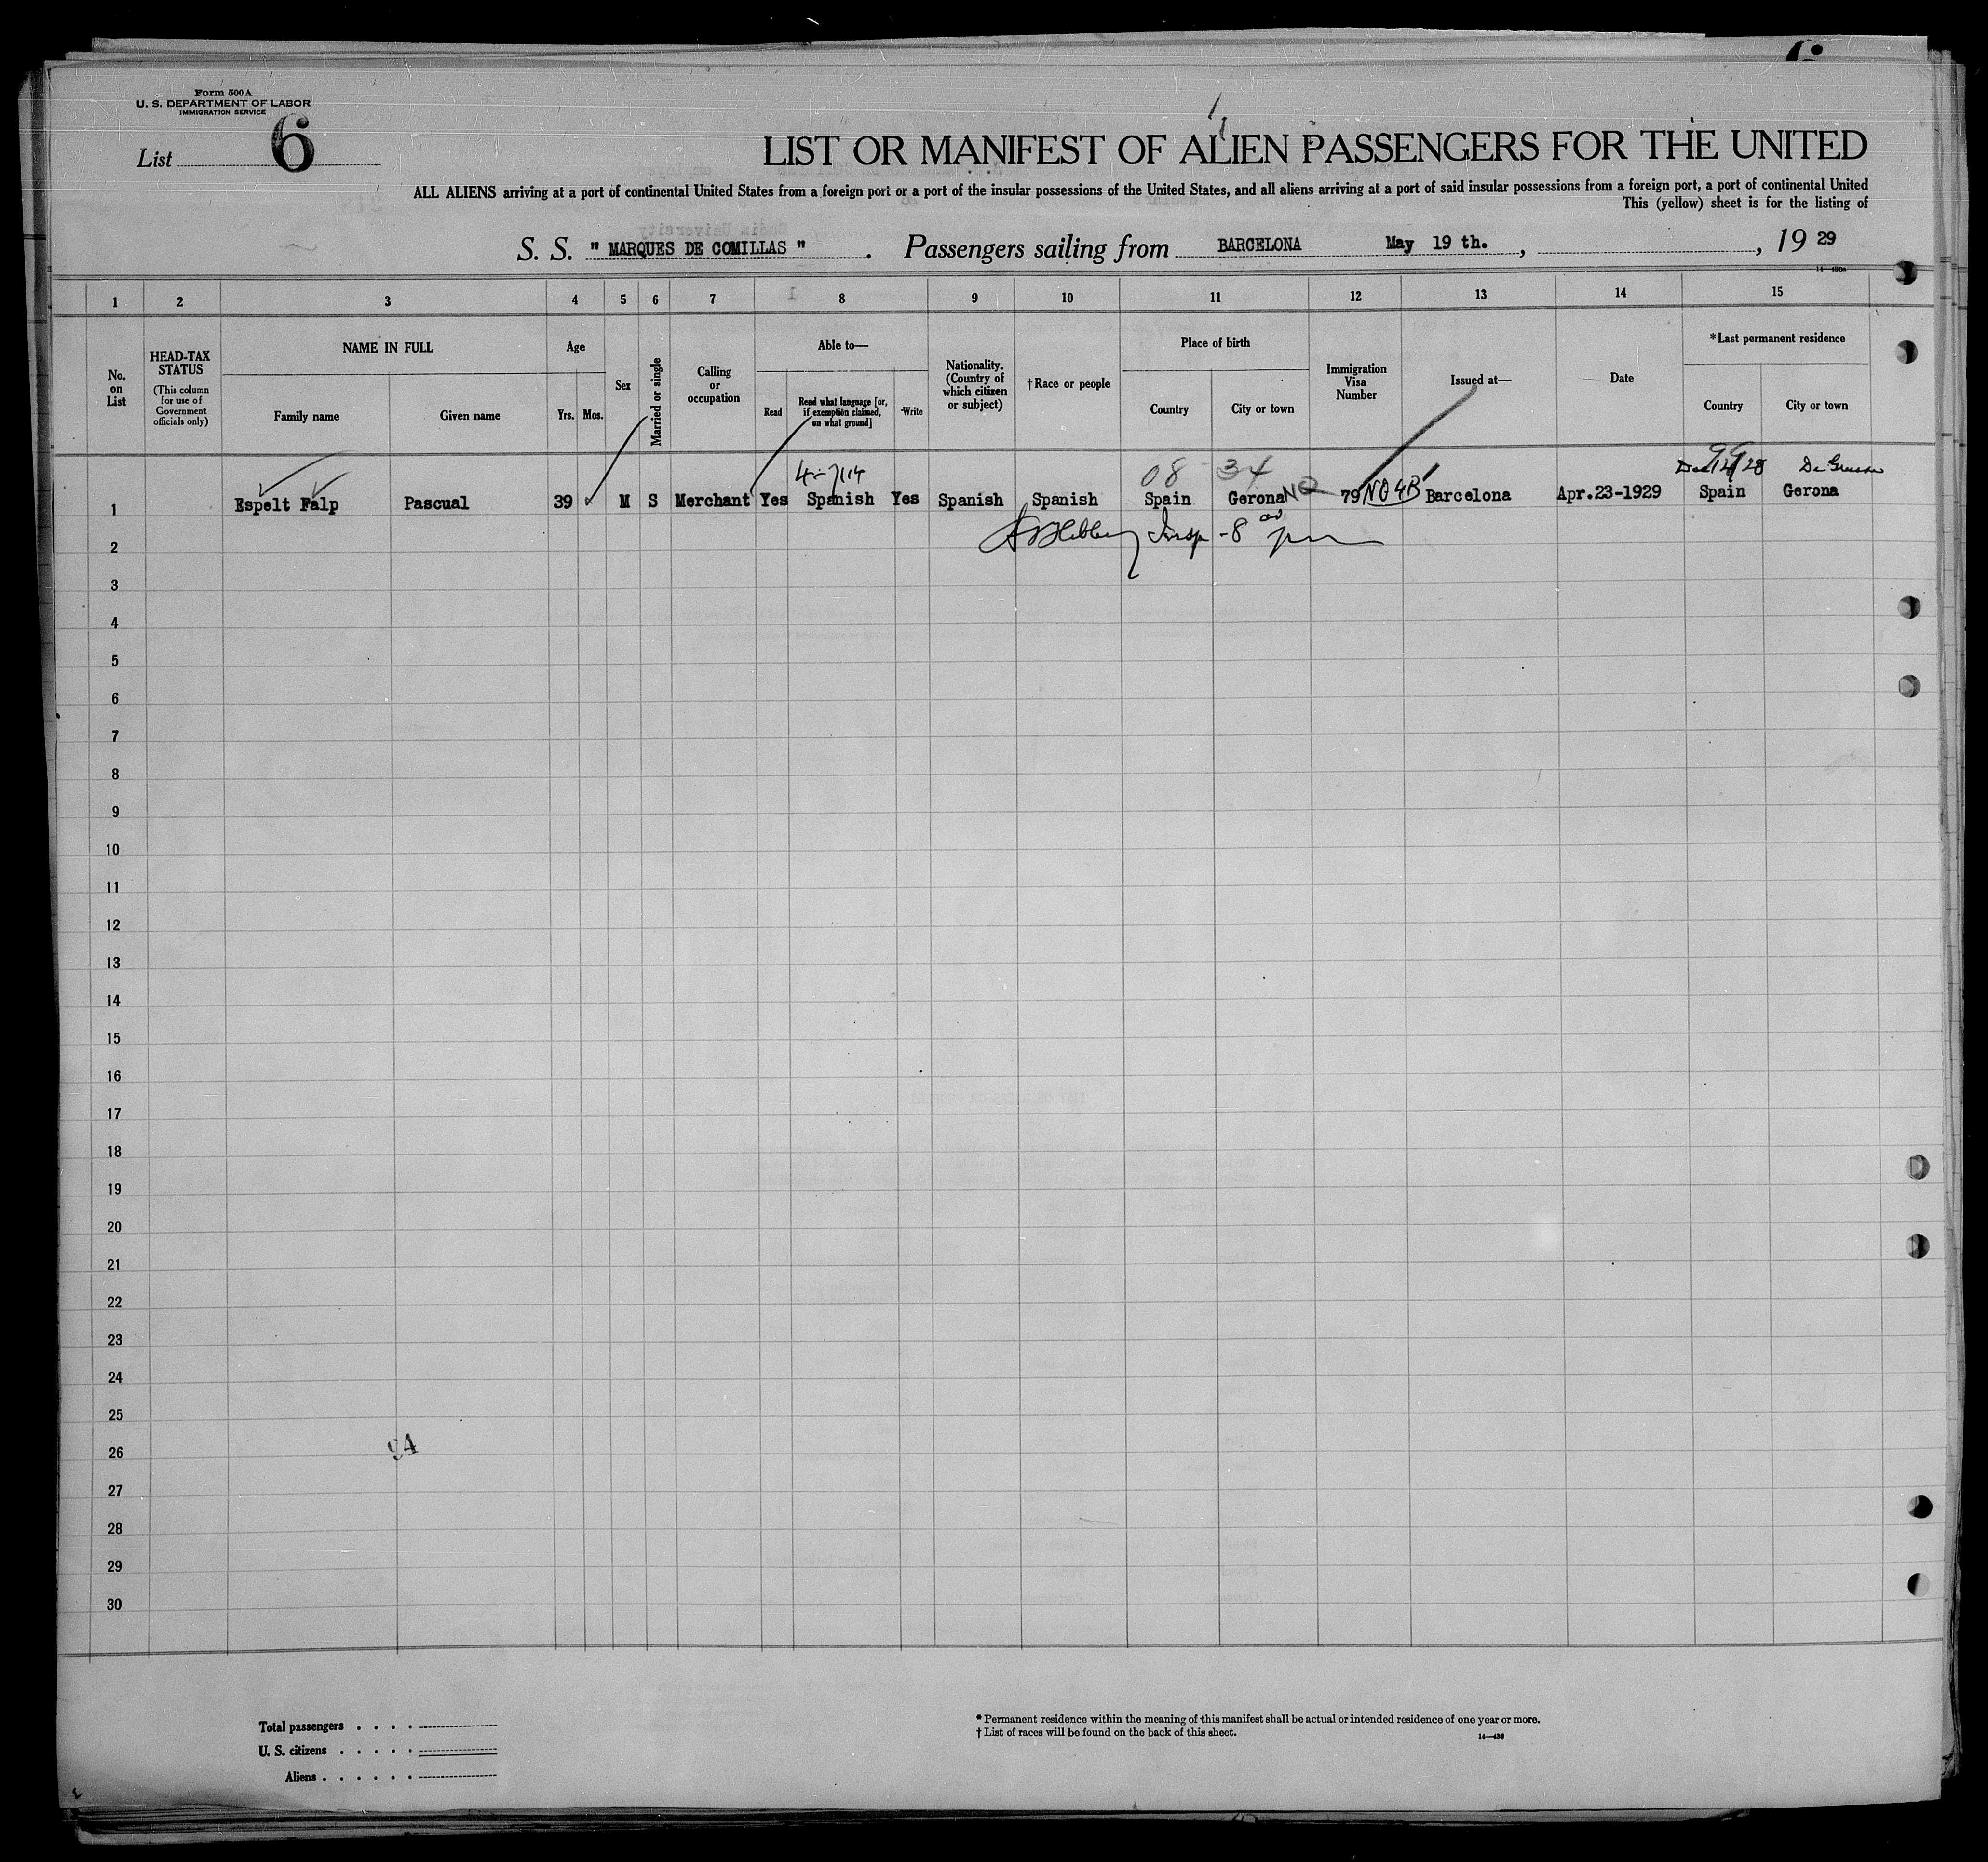 Form 500A
U. S. DEPARTMENT OF LABOR
IMMIGRATION SERVICE
List 6
LIST OR MANIFEST OF ALIEN PASSENGERS FOR THE UNITED
ALL ALIENS arriving at a port of continental United States from a foreign port or a port of the insular possessions of the United States, and all aliens arriving at a port of said insular possessions from a foreign port, a port of continental United
This (yellow) sheet is for the listing of
S. S. " MARQUES DE COMILLAS ". Passengers sailing from BARCELONA May 19 th. , , 19 29
1 2 3 4 5 6 7 8 9 10 11 12 13 14 15
No. on List
HEAD-TAX STATUS
(This column for use of Government officials only)
NAME IN FULL
Family name
Given name
Age
Yrs. Mos.
Sex
Married or single
Calling or occupation
Able to—
Read
Read what language [or, if exemption claimed, on what ground]
Write
Nationality. (Country of which citizen or subject)
†Race or people
Place of birth
Country
City or town
Immigration Visa Number
Issued at—
Date
*Last permanent residence
Country
City or town
08 34
1 Espelt Falp Pascual 39 M S Merchant Yes Spanish Yes Spanish Spanish Spain Gerona NQ 79 NQ 4B Barcelona Apr.23-1929 Spain Gerona
2
3
4
5
6
7
8
9
10
11
12
13
14
15
16
17
18
19
20
21
22
23
24
25
26
94
27
28
29
30
Total passengers . . . .
U. S. citizens . . . . .
Aliens . . . . . .
* Permanent residence within the meaning of this manifest shall be actual or intended residence of one year or more.
† List of races will be found on the back of this sheet.
14—430